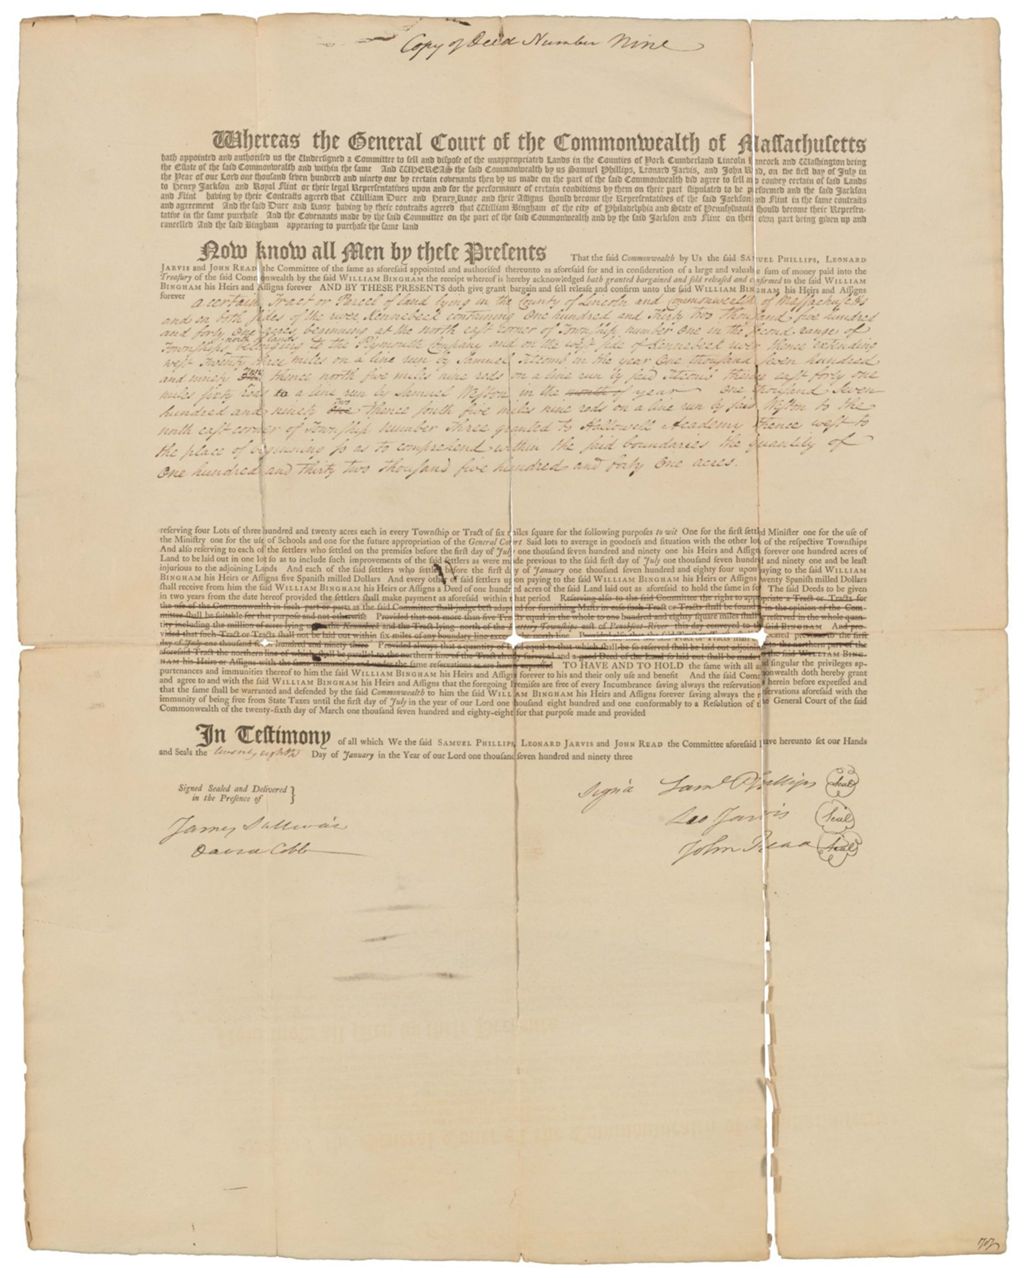 Copy of Deed Number Nine
Whereas the General Court of the Commonwealth of Massachusetts
hath appointed and authorised us the Undersigned a Committee to sell and dispose of the unappropriated Lands in the Counties of York Cumberland Lincoln Hancock and Washington being
the Estate of the said Commonwealth and within the same And WHEREAS the said Commonwealth by us Samuel Phillips, Leonard Jarvis, and John Read, on the first day of July in
the Year of our Lord one thousand seven hundred and ninety one by certain covenants then by us made on the part of the said Commonwealth did agree to sell and convey certain of said Lands
to Henry Jackson and Royal Flint or their legal Representatives upon and for the performance of certain conditions by them on their part stipulated to be performed and the said Jackson
and Flint having by their Contracts agreed that William Duer and Henry Knox and their Assigns should become the Representatives of the said Jackson and Flint in the same contracts
and agreement And the said Duer and Knox having by their contracts agreed that William Bingham of the city of Philadelphia and State of Pennsylvania should become their Represen-
tative in the same purchase And the Covenants made by the said Committee on the part of the said Commonwealth and by the said Jackson and Flint on their own part being given up and
cancelled And the said Bingham appearing to purchase the same land
Now know all Men by these Presents That the said Commonwealth by Us the said SAMUEL PHILLIPS, LEONARD
JARVIS and JOHN READ the Committee of the same as aforesaid appointed and authorised thereunto as aforesaid for and in consideration of a large and valuable sum of money paid into the
Treasury of the said Commonwealth by the said WILLIAM BINGHAM the receipt whereof is hereby acknowledged hath granted bargained and sold released and confirmed to the said WILLIAM
BINGHAM his Heirs and Assigns forever AND BY THESE PRESENTS doth give grant bargain and sell release and confirm unto the said WILLIAM BINGHAM his Heirs and Assigns
forever
a certain Tract or Parcel of land lying in the County of Lincoln and Commonwealth of Massachusetts
and on both sides of the river Kennebeck containing One hundred and thirty two thousand five hundred
and forty One acres beginning at the north east corner of Township number One in the Second range of
Townships north of land belonging to the Plymouth Company and on the west side of Kennebeck river thence extending
west Twenty three miles on a line run by Samuel Titcomb in the year One thousand seven hundred
and ninety thence north five miles nine rods on a line run by said Titcomb thence east forty one
miles sixty rods to a line run by Samuel Weston in the month of year One thousand Seven
hundred and ninety One thence south five miles nine rods on a line run by said Weston to the
north east corner of Township number Three granted to Hallowell Academy thence west to
the place of beginning so as to comprehend within the said boundaries the quantity of
One hundred and thirty two thousand five hundred and forty One acres.
reserving four Lots of three hundred and twenty acres each in every Township or Tract of six miles square for the following purposes to wit One for the first settled Minister one for the use of
the Ministry one for the use of Schools and one for the future appropriation of the General Court Said lots to average in goodness and situation with the other lots of the respective Townships
And also reserving to each of the settlers who settled on the premises before the first day of July one thousand seven hundred and ninety one his Heirs and Assigns forever one hundred acres of
Land to be laid out in one lot so as to include such improvements of the said settlers as were made previous to the said first day of July one thousand seven hundred and ninety one and be least
injurious to the adjoining Lands And each of the said settlers who settled before the first day of January one thousand seven hundred and eighty four upon paying to the said WILLIAM
BINGHAM his Heirs or Assigns five Spanish milled Dollars And every other of said settlers upon paying to the said WILLIAM BINGHAM his Heirs or Assigns twenty Spanish milled Dollars
shall receive from him the said WILLIAM BINGHAM his Heirs or Assigns a Deed of one hundred acres of the Land laid out as aforesaid to hold the same in fee The said Deeds to be given
in two years from the date hereof provided the settlers shall make payment as aforesaid within that period Reserving also to the said Committee the right to appropriate a Tract or Tracts for
the use of the Commonwealth in such part or parts as the said Committee shall judge best adapted for furnishing Masts in case such Tract or Tracts shall be found in the opinion of the Com-
mittee shall be suitable for that purpose and not otherwise Provided that not more than five Tracts equal in the whole to one hundred and eighty square miles shall be reserved in the whole quan-
tity including the million of acres lying
TO HAVE AND TO HOLD the same with all and singular the privileges ap-
purtenances and immunities thereof to him the said WILLIAM BINGHAM his Heirs and Assigns forever to his and their only use and benefit And the said Commonwealth doth hereby grant
and agree to and with the said WILLIAM BINGHAM his Heirs and Assigns that the foregoing Premises are free of every Incumbrance saving always the reservations herein before expressed and
that the same shall be warranted and defended by the said Commonwealth to him the said WILLIAM BINGHAM his Heirs and Assigns forever saving always the reservations aforesaid with the
immunity of being free from State Taxes until the first day of July in the year of our Lord one thousand eight hundred and one conformably to a Resolution of the General Court of the said
Commonwealth of the twenty-sixth day of March one thousand seven hundred and eighty-eight for that purpose made and provided
In Testimony of all which We the said SAMUEL PHILLIPS, LEONARD JARVIS and JOHN READ the Committee aforesaid have hereunto set our Hands
and Seals the twenty eighth Day of January in the Year of our Lord one thousand seven hundred and ninety three
Signed Sealed and Delivered
in the Presence of
James Sullivan
David Cobb
Sign'd Saml Phillips Seal
Leo Jarvis Seal
John Read Seal